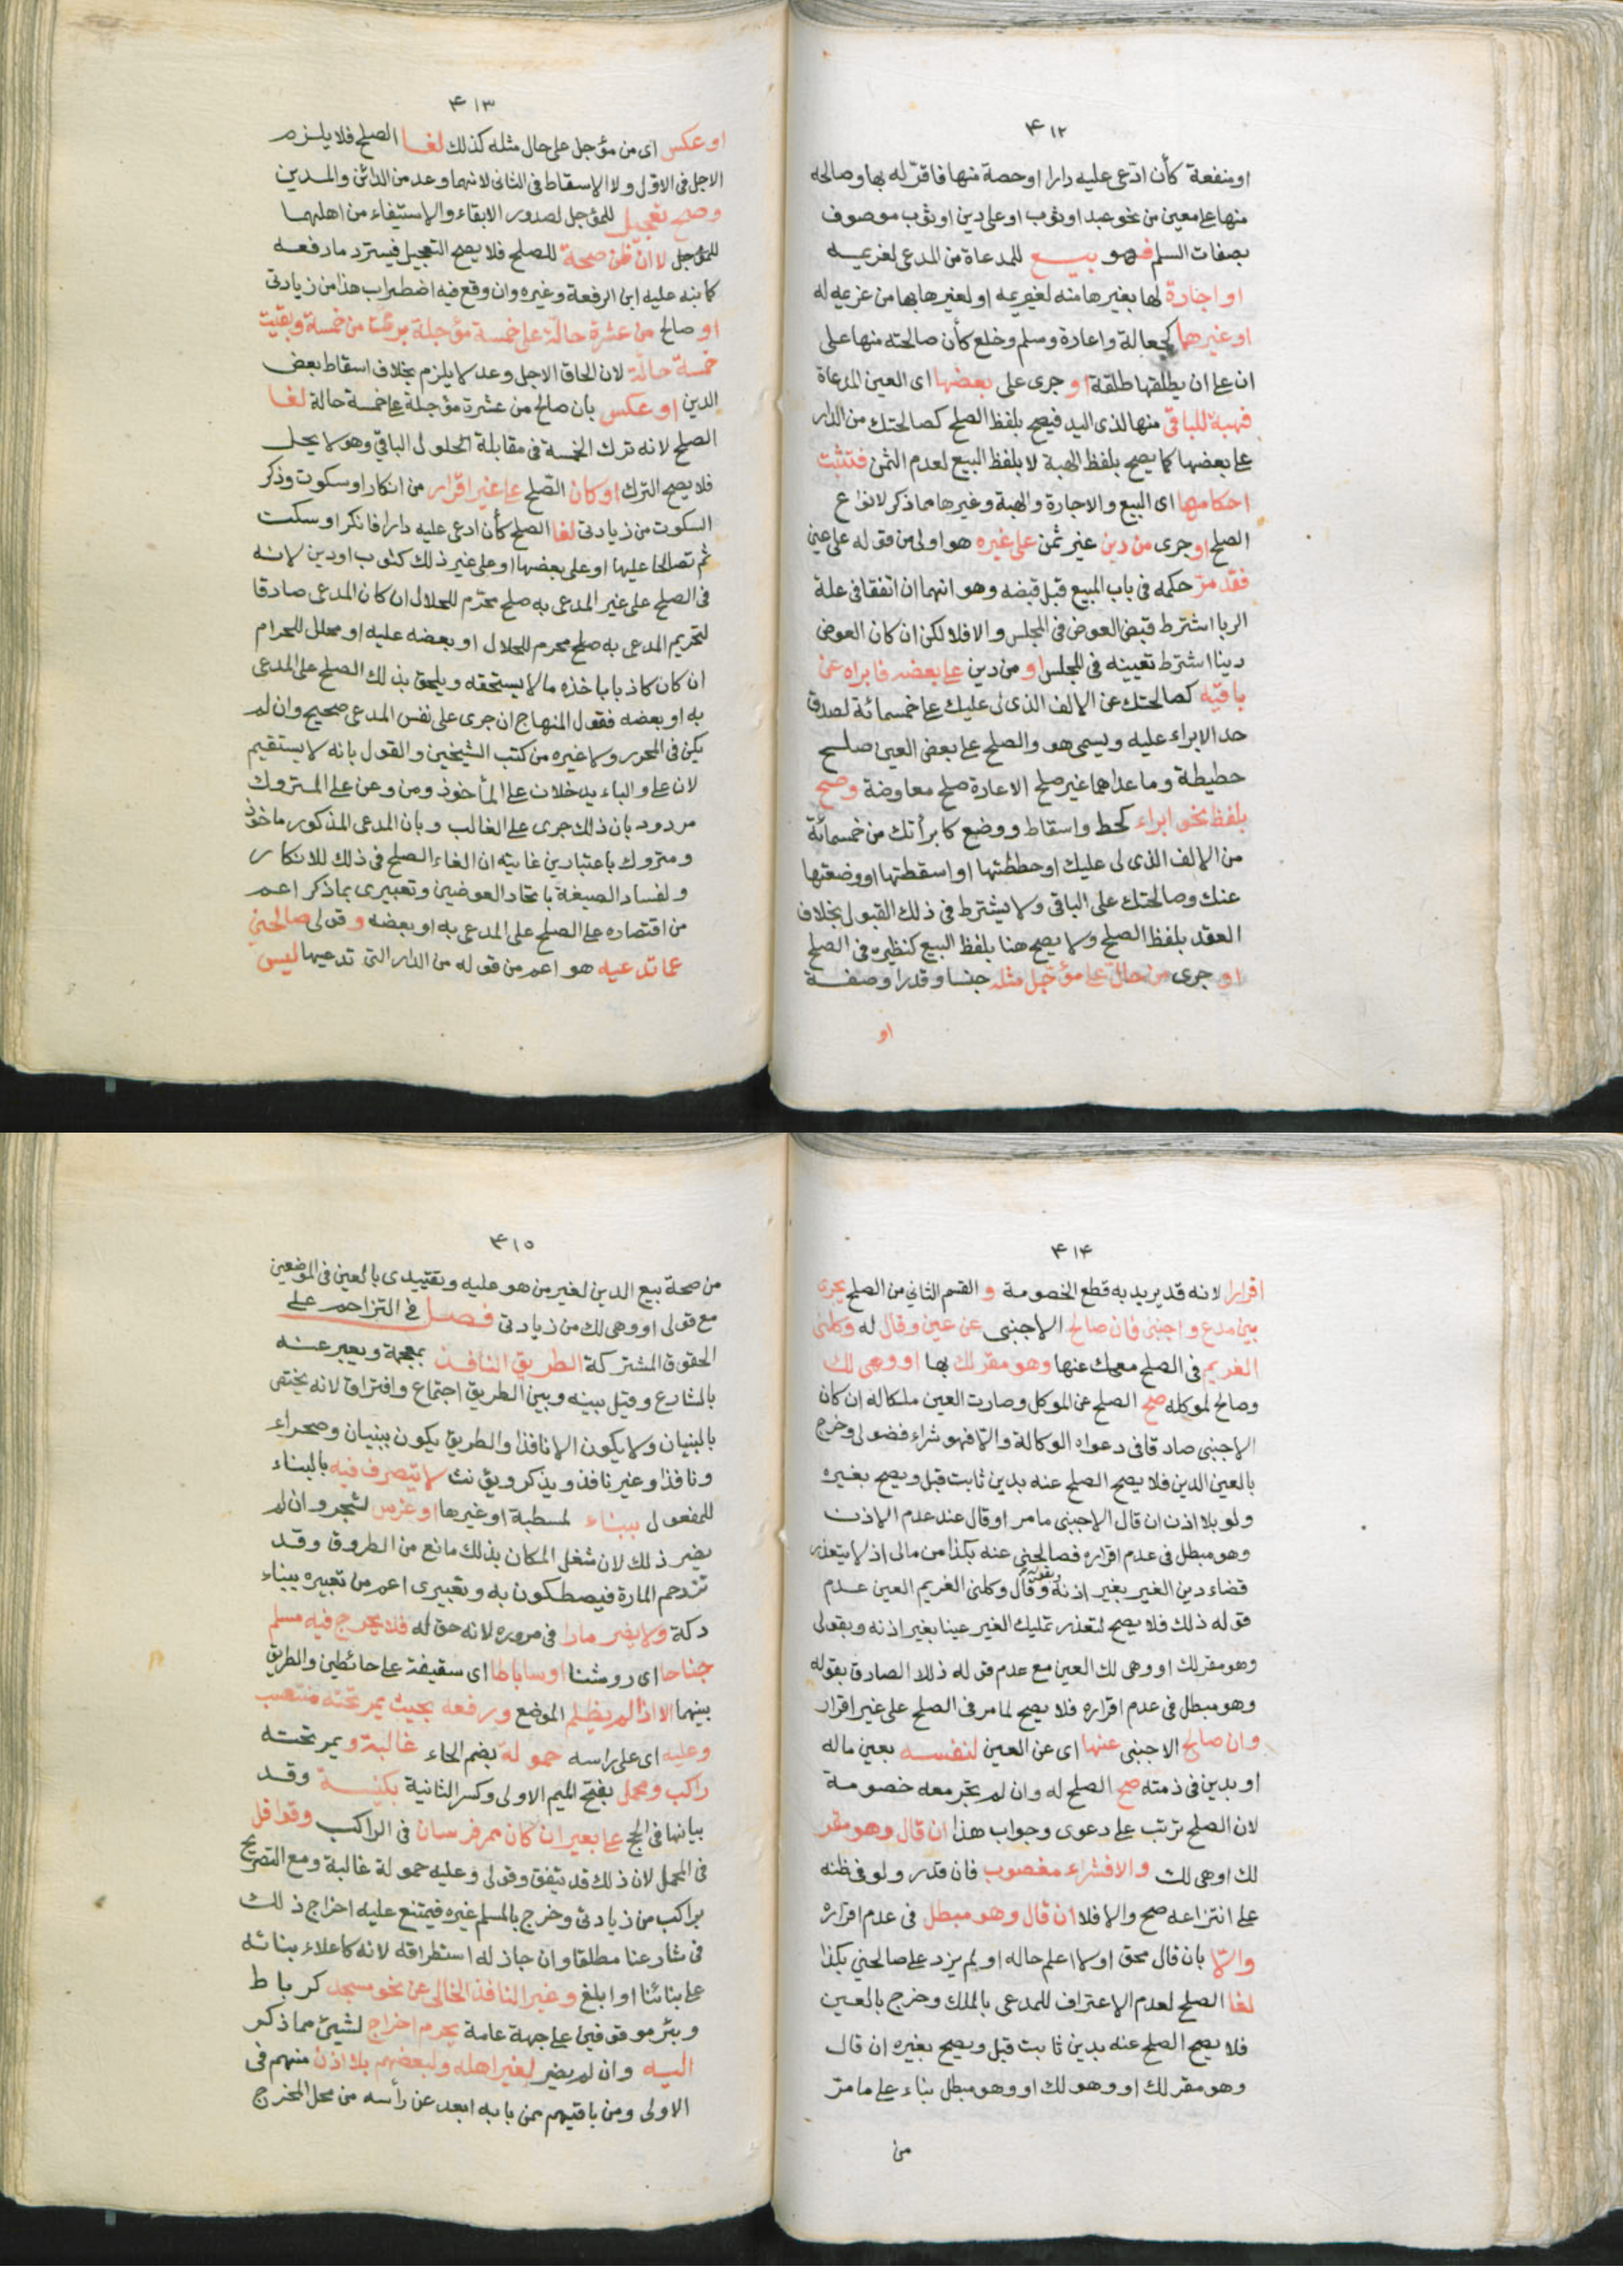 ۴۱۲
او منفعة كأن ادّعى عليه دارا او حصة منها فاقرّ له بها وصالحه
منها على معين من نحو عبد او ثوب او على دين او ثوب موصوف
بصفات السلم فهو بيع للمدعاة من المدعى لغريمه
او اجارة لها بغيرها منه لغريمه او لغيرها بها من غريمه له
او غيرهما كجعالة واعارة وسلم وخلع كأن صالحته منها على
ان على ان يطلقها طلقة او جرى على بعضها اى العين المدعاة
فهبة للباقى منها لذى اليد فيصح بلفظ الصلح كصالحتك من الدار
على بعضها كما يصح بلفظ الهبة لا بلفظ البيع لعدم الثمن فتثبت
احكامها اى البيع والاجارة والهبة وغيرها مما ذكر لانواع
الصلح او جرى من دين غير ثمن على غيره هو اولى من قوله على عين
فقد مرّ حكمه فى باب المبيع قبل قبضه وهو انهما ان اتفقا فى علة
الربا اشترط قبض العوض فى المجلس والا فلا لكن ان كان العوض
دينا اشترط تعيينه فى المجلس او من دين على بعضه فابراء عن
باقيه كصالحتك عن الالف الذى لى عليك على خمسمائة لصدق
حد الابراء عليه ويسمى هو والصلح على بعض العين صلح
حطيطة وما عداهما غير صلح الاعارة صلح معاوضة وصح
بلفظ نحو ابراء كحط واسقاط ووضع كابرأتك من خمسمائة
من الالف الذى لى عليك او حططتها او اسقطتها او وضعتها
عنك وصالحتك على الباقى ولا يشترط فى ذلك القبول بخلاف
العقد بلفظ الصلح ولا يصح هنا بلفظ البيع كنظيره فى الصلح
او جرى من حالّ على مؤجل مثله جنسا وقدرا وصفة
او
۴۱۳
او عكس اى من مؤجل على حال مثله كذلك لغا الصلح فلا يلزم
الاجل فى الاول ولا الاسقاط فى الثانى لانهما وعد من الدائن والمدين
وصح تعجيل للمؤجل لصدور الايفاء والاستيفاء من اهلهما
للمؤجل لا ان ظن صحة للصلح فلا يصح التعجيل فيسترد ما دفعه
كما نبه عليه ابن الرفعة وغيره وان وقع فيه اضطراب هذا من زيادتى
او صالح من عشرة حالّة على خمسة مؤجلة برئت من خمسة وبقيت
خمسة حالّة لان الحاق الاجل وعد لا يلزم بخلاف اسقاط بعض
الدين او عكس بان صالح من عشرة مؤجلة على خمسة حالة لغا
الصلح لانه ترك الخمسة فى مقابلة الحلول لى الباقى وهو لا يحل
فلا يصح الترك او كان الصّلح على غير اقرار من انكار او سكوت وذكر
السكوت من زيادتى لغا الصلح كأن ادعى عليه دارا فانكر او سكت
ثم تصالحا عليها او على بعضها او على غير ذلك كثوب او دين لانه
فى الصلح على غير المدعى به صلح محرّم للحلال ان كان المدعى صادقا
لتحريم المدعى به صلح محرم للحلال او بعضه عليه او محلل للحرام
ان كان كاذبا باخذه ما لا يستحقه ويلحق بذلك الصلح على المدعى
به او بعضه فقول المنهاج ان جرى على نفس المدعى صحيح وان لم
يكن فى المحرر ولا غيره من كتب الشيخين والقول بانه لا يستقيم
لان على والباء يدخلان على المأخوذ ومن وعن على المتروك
مردود بان ذلك جرى على الغالب وبان المدعى المذكور ماخوذ
ومتروك باعتبارين غايته ان الغاء الصلح فى ذلك للانكار
ولفساد الصيغة باتحاد العوضين وتعبيرى بما ذكر اعم
من اقتصاره على الصلح على المدعى به او بعضه وقولى صالحنى
عما تدعيه هو اعم من قوله من الدار التى تدعيها ليس
۴۱۴
اقرارا لانه قد يريد به قطع الخصومة و القسم الثانى من الصلح يجرى
بين مدع واجنبى فان صالح الاجنبى عن عين وقال له وكلنى
الغريم فى الصلح معك عنها وهو مقر لك بها او وهى لك
وصالح لموكله صح الصلح عن الموكل وصارت العين ملكا له ان كان
الاجنبى صادقا فى دعواه الوكالة والّا فهو شراء فضولى وخرج
بالعين الدين فلا يصح الصلح عنه بدين ثابت قبل ويصح بغيره
ولو بلا اذن ان قال الاجنبى ما مر او قال عند عدم الاذن
وهو مبطل فى عدم اقراره فصالحنى عنه بكذا من مالى اذ لا يتعذر
قضاء دين الغير بغير اذنه وبقولى وقال وكلنى الغريم العين عدم
قوله ذلك فلا يصح لتعذر تمليك الغير عينا بغير اذنه وبقولى
وهو مقر لك او وهى لك العين مع عدم قوله ذلك الصادق بقوله
وهو مبطل فى عدم اقراره فلا يصح لما مر فى الصلح على غير اقرار
وان صالح الاجنبى عنها اى عن العين لنفسه بعين ماله
او بدين فى ذمته صح الصلح له وان لم يجر معه خصومة
لان الصلح ترتب على دعوى وجواب هذا ان قال وهو مقر
لك او هى لك والا فشراء مغصوب فان قدر ولو فى ظنه
على انتزاعه صح والا فلا ان قال وهو مبطل فى عدم اقراره
والّا بان قال محق او لا اعلم حاله او لم يزد على صالحنى بكذا
لغا الصلح لعدم الاعتراف للمدعى بالملك وخرج بالعين
فلا يصح الصلح عنه بدين ثابت قبل ويصح بغيره ان قال
وهو مقر لك او وهو لك او وهو مبطل بناء على ما مرّ
من
۴۱۵
من صحة بيع الدين لغير من هو عليه وتقييدى بالعين فى الموضعين
مع قولى او وهى لك من زيادتى فصل فى التزاحم على
الحقوق المشتركة الطريق النافذ بمعجمة ويعبر عنه
بالشارع وقيل بينه وبين الطريق اجتماع وافتراق لانه يختص
بالبنيان ولا يكون الا نافذا والطريق يكون ببنيان وصحراء
ونافذا وغير نافذ ويذكر ويؤنث لا يتصرف فيه بالبناء
للمفعول ببناء لمسطبة او غيرها او غرس لشجر وان لم
يضر ذلك لان شغل المكان بذلك مانع من الطروق وقد
تزدحم المارة فيصطكون به وتعبيرى اعم من تعبيره ببناء
دكة ولا يضر مارا فى مروره لانه حق له فلا يخرج فيه مسلم
جناحا اى روشنا او ساباطا اى سقيفة على حائطين والطريق
بينهما الا اذا لم يظلم الموضع ورفعه بحيث يمر تحته منتصب
وعليه اى على راسه حمولة بضم الحاء غالبة ويمر تحته
راكب ومحمل بفتح الميم الاولى وكسر الثانية بكنيسة وقد
بيانها فى الحج على بعير ان كان ممر فرسان فى الراكب وقوافل
فى المحمل لان ذلك قد يتفق وقولى وعليه حمولة غالبة ومع التصريح
براكب من زيادتى وخرج بالمسلم غيره فيمتنع عليه اخراج ذلك
فى شارعنا مطلقا وان جاز له استطراقه لانه كاعلاء بنائه
على بنائنا او ابلغ وغير النافذ الخالى عن نحو مسجد كرباط
وبئر موقوفين على جهة عامة يحرم اخراج لشىئ مما ذكر
اليه وان لم يضر لغير اهله ولبعضهم بلا اذن منهم فى
الاولى ومن باقيهم ممن بابه ابعد عن رأسه من محل المخرج